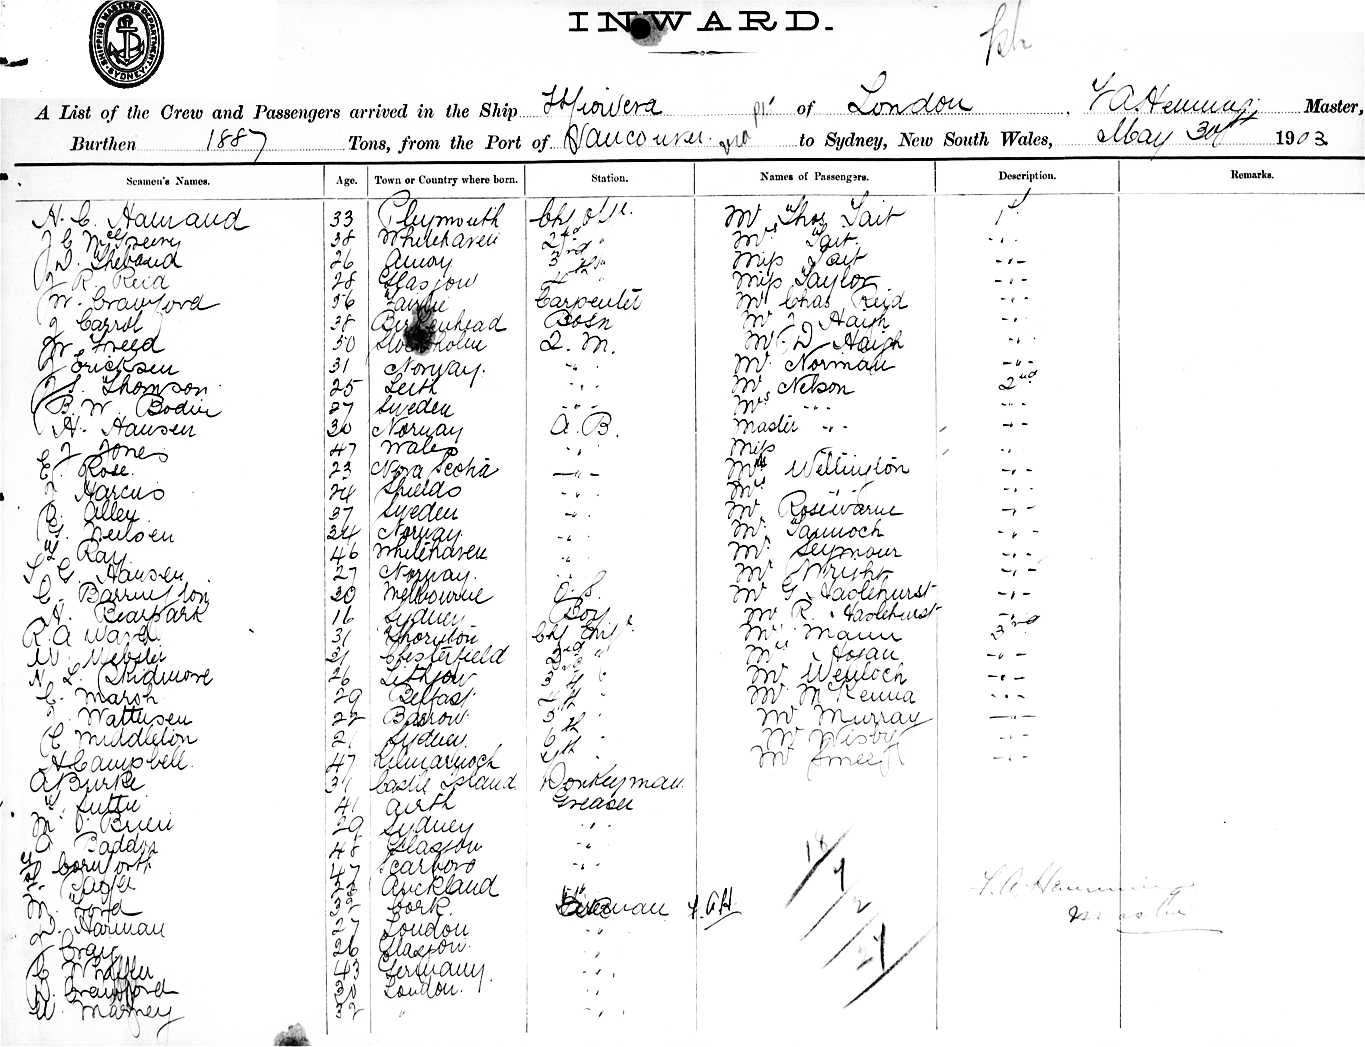 SHIPPING MASTERS DEPARTMENT SYDNEY
INWARD.
A List of the Crew and Passengers arrived in the Ship Miowera of London, F A Hemming Master,
Burthen 1887 Tons, from the Port of Vancouver to Sydney, New South Wales, May 30th 1903
Seamen's Names. Age. Town or Country where born. Station. Names of Passengers. Description. Remarks.
33 Plymouth Chf Offr. Mr Thos Tait 1st
38 Whitehaven 2nd " Mrs Tait " - "
26 Amoy 3rd " Miss Tait " - "
J R. Reid 28 Glasgow 4th " Miss Taylor " - "
W. Crawford 56 Carpenter Mr Chas Reid " - "
J Carrol 38 Birkenhead Bosn Mr J Haigh " - "
50 Stockholm Q. M. Mr D Haigh " - "
J Ericksen 31 Norway. " - " Mr Norman " - "
J S. Thomson 25 Leith " - " Mr Nelson 2nd
B. W. Bodin 27 Sweden " - " Mrs " - " " - "
H. Hansen 30 Norway A. B. Master " - " " - "
J Jones 47 Wales " - " Miss " - "
E. Rose. 23 Nova Scotia " - " Mr Wellington " - "
J Marcus 24 Shields " - " Mrs " " - "
Alley 37 Sweden " - " Mr Rosewarne " - "
Neilsen 34 Norway. " - " Mr Tannoch " - "
Ray 46 Whitehaven " - " Mr Seymour " - "
Hansen 27 Norway. " - " Mr Wright " - "
C. Barrington 20 Melbourne O. S. Mr G Haslehurst " - "
H. Bearpark 16 Sydney Boy Mr R. Haslehurst " - "
R A Ward 31 Thornton Chf Engr. Mr Mann 3rd
W. Webster 31 Chesterfield 2nd " Mr Hogan " - "
N. L. Skidmore 26 Lithgow 3rd " Mr Wenloch " - "
C. Marsh 29 Belfast 4th " Mr McKenna " - "
J Wattusen 22 Barrow 5th " Mr Murray " - "
C Middleton 21 Sydney. 6th " Mr Wisby " - "
A Campbell. 47 Kilmarnoch 7th " Mr " - "
A Burke 31 Castle Island Donkeyman
Suttie 41 Airth Greaser
M. O Brien 29 Sydney " - "
Baddis 48 Glasgow " - "
Cornforth 47 Scarboro " - "
Auckland
M. Ford 32 Cork. Fireman F. A H.
Harman 27 London " - "
J Gray 26 Glasgow " - "
43 Germany. " - "
Crawford 30 London. " - "
W. Marney 32 " " - "
F. A. Hemming
Master